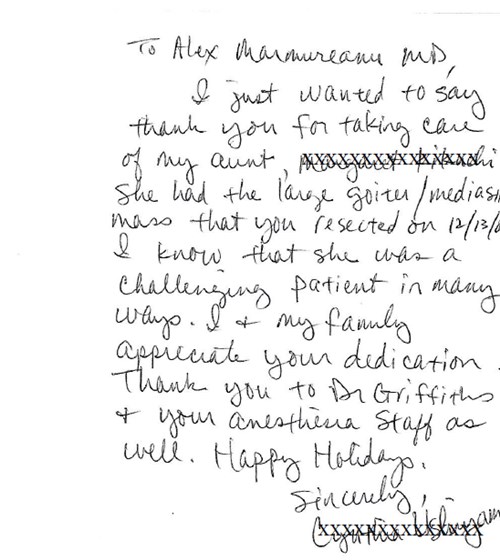 To Alex Marmureanu MD,
I just wanted to say
thank you for taking care
of my aunt,
She had the large goiter/medias
mass that you resected on 12/13/0
I know that she was a
challenging patient in many
ways. I & my family
appreciate your dedication.
Thank you to Dr Griffiths
& your anesthesia staff as
well. Happy Holidays.
Sincerely,